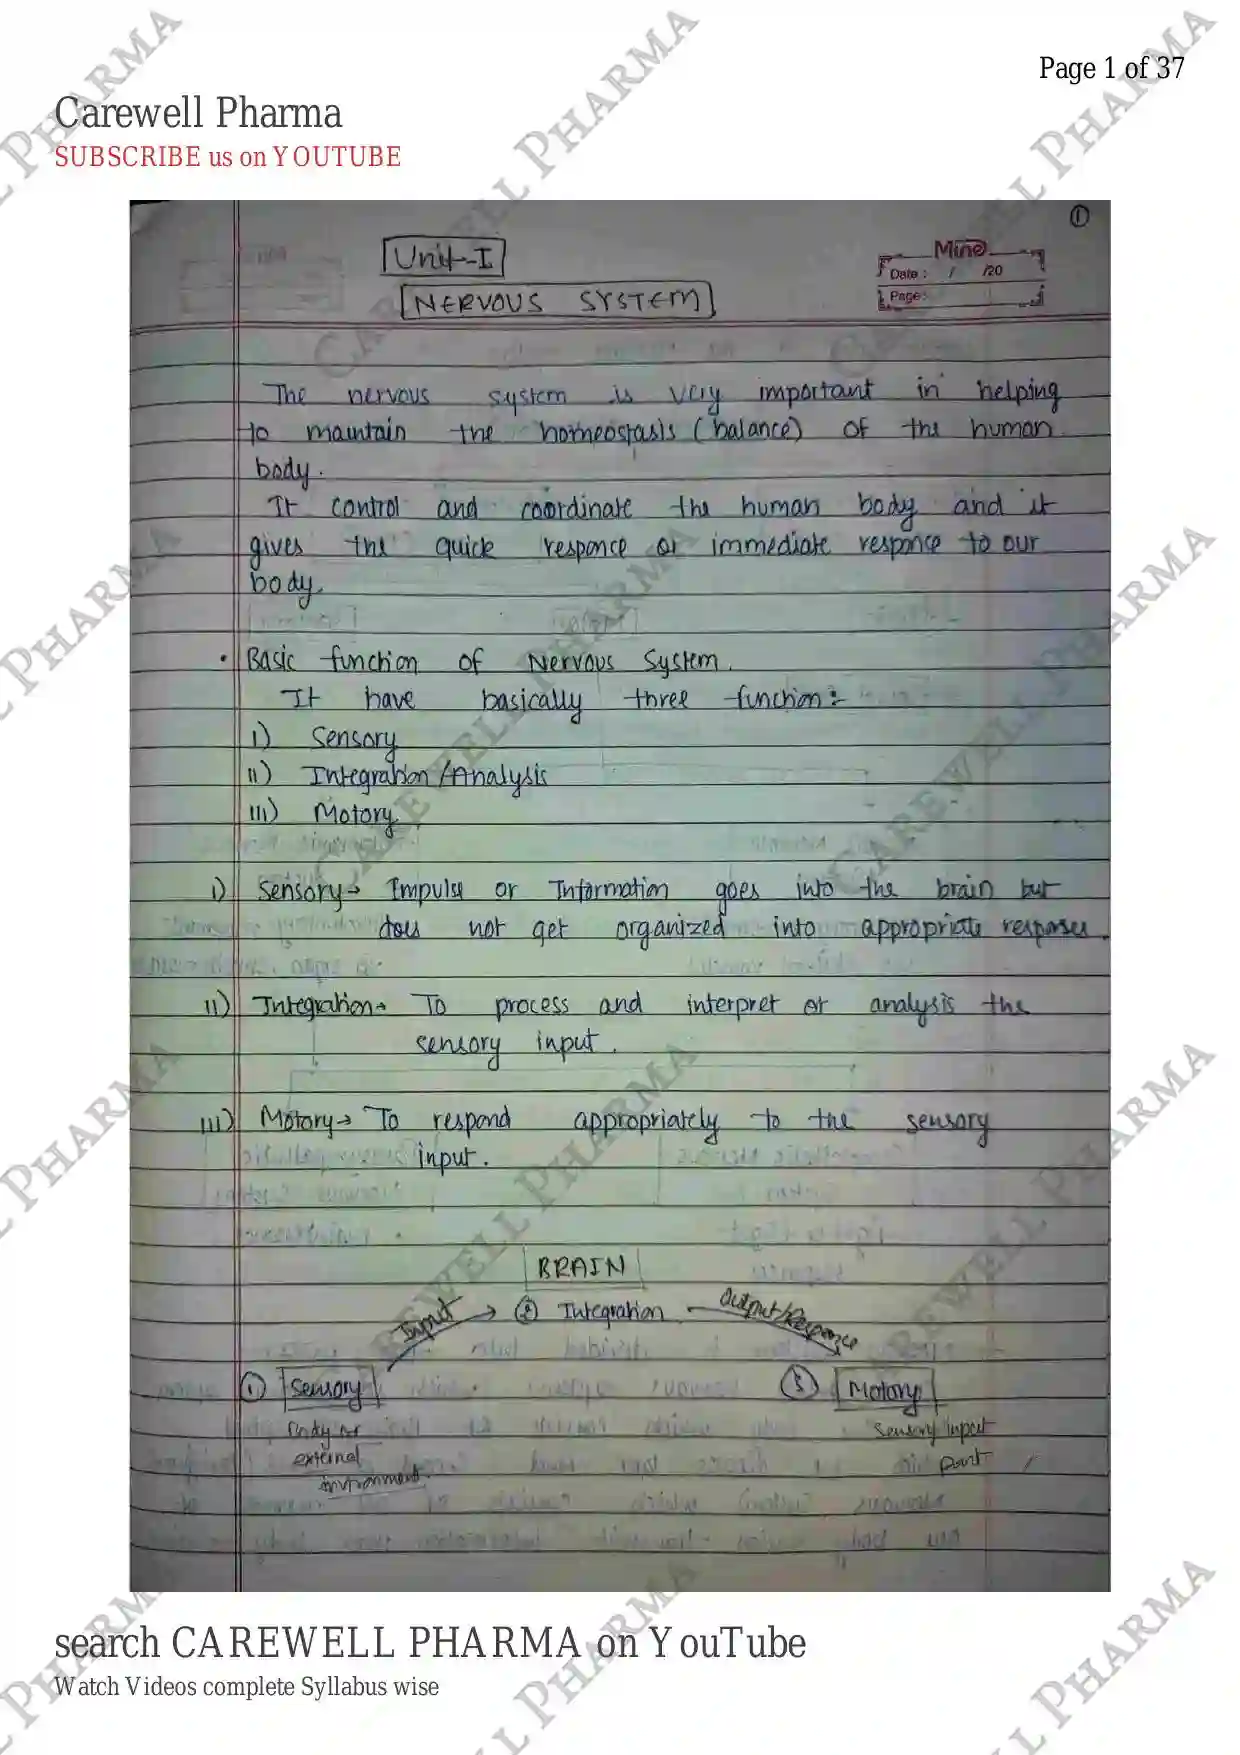 Page 1 of 37
Carewell Pharma
SUBSCRIBE us on YOUTUBE
①
Unit-I
Mine
Date : / /20
Page:
NERVOUS SYSTEM
The nervous system is very important in helping
to maintain the homeostasis (balance) of the human
body.
It control and coordinate the human body and it
gives the quick responce or immediate responce to our
body.
• Basic function of Nervous System.
It have basically three function:-
i) Sensory
ii) Integration/Analysis
iii) Motory
i) Sensory→ Impulse or Information goes into the brain but
does not get organized into appropriate responses.
ii) Integration→ To process and interpret or analysis the
sensory input.
iii) Motory→ To respond appropriately to the sensory
input.
BRAIN
Input → ② Integration Output/Responce
① Sensory ③ Motory
Body or Sensory Input
external part
invironment.
search CAREWELL PHARMA on YouTube
Watch Videos complete Syllabus wise
CAREWELL PHARMA